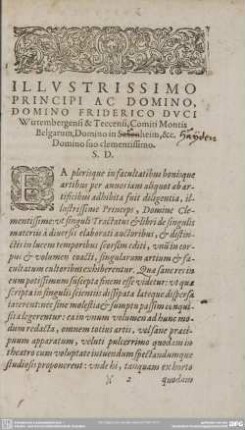 ILLVSTRISSIMO
PRINCIPI AC DOMINO,
DOMINO FRIDERICO DVCI
Wirtembergensi & Teccensi, Comiti Montis
Belgarum, Domino in heim, &c.
Domino suo clementissimo.
S. D.
EA plerisque in facultatibus bonisque
artibus per annos iam aliquot ab ar-
tificibus adhibita fuit diligentia, il-
lustrissime Princeps, Domine Cle-
mentissime: vt singuli Tractatus & libri de singulis
materiis à diuersis elaborati auctoribus, & distin-
ctis in lucem temporibus seorsim editi, vnū in cor-
pus & volumen coacti, singularum artium & fa-
cultatum cultoribus exhiberentur. Qua sanè res in
eum potissimum suscepta finem esse videtur: vt quæ
scripta in singulis scientiis dissipata latèque dispersa
iacerent: nec sine molestia & sumptu passim conqui-
sita legerentur: ea in vnum volumen ad hunc mo-
dum redacta, omnem totius artis, vel sanè præci-
puum apparatum, veluti pulcerrimo quodam in
theatro cum voluptate intuendum spectandumque
studiosis proponerent: vnde hi, tanquam ex horto
2 quodam